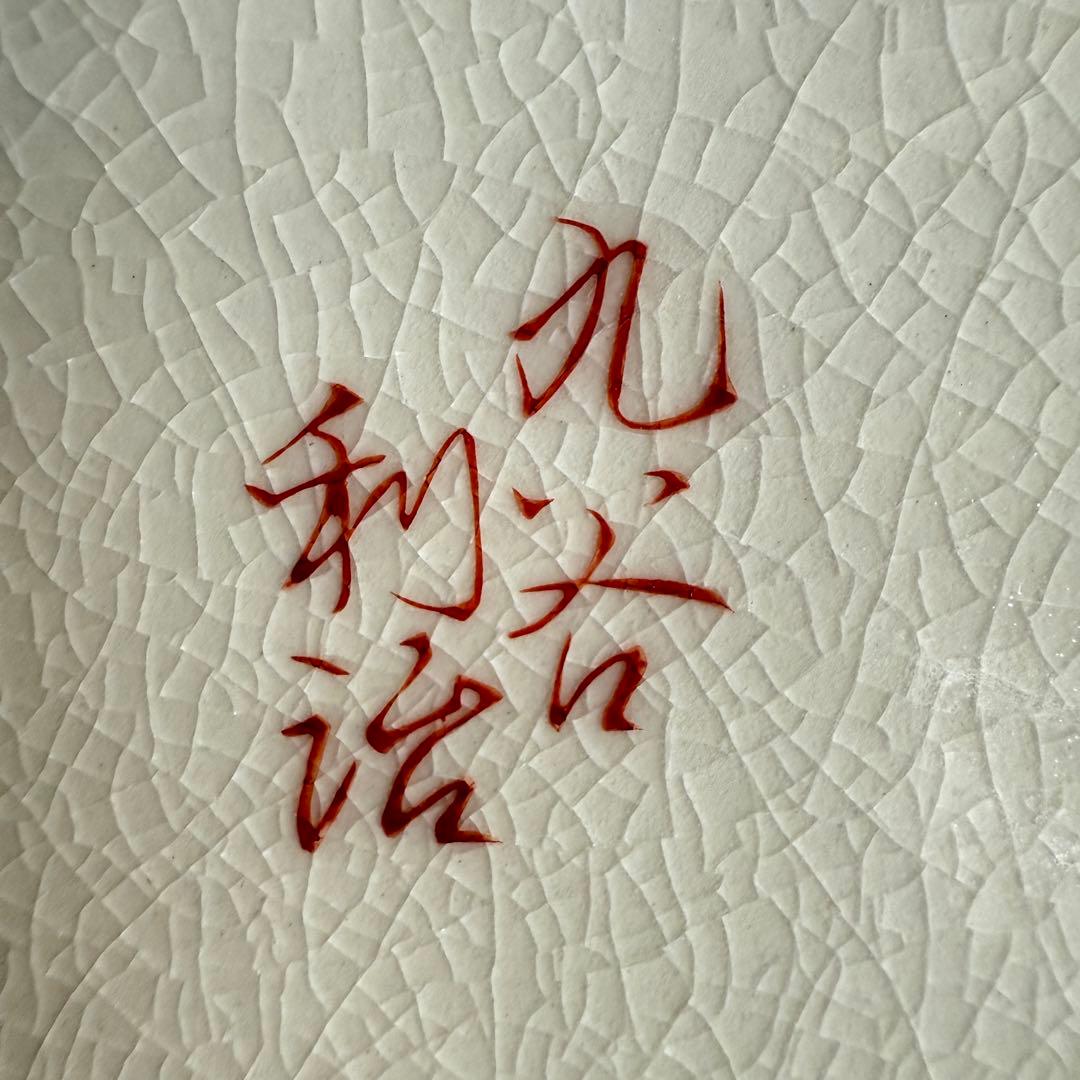 九谷
利治